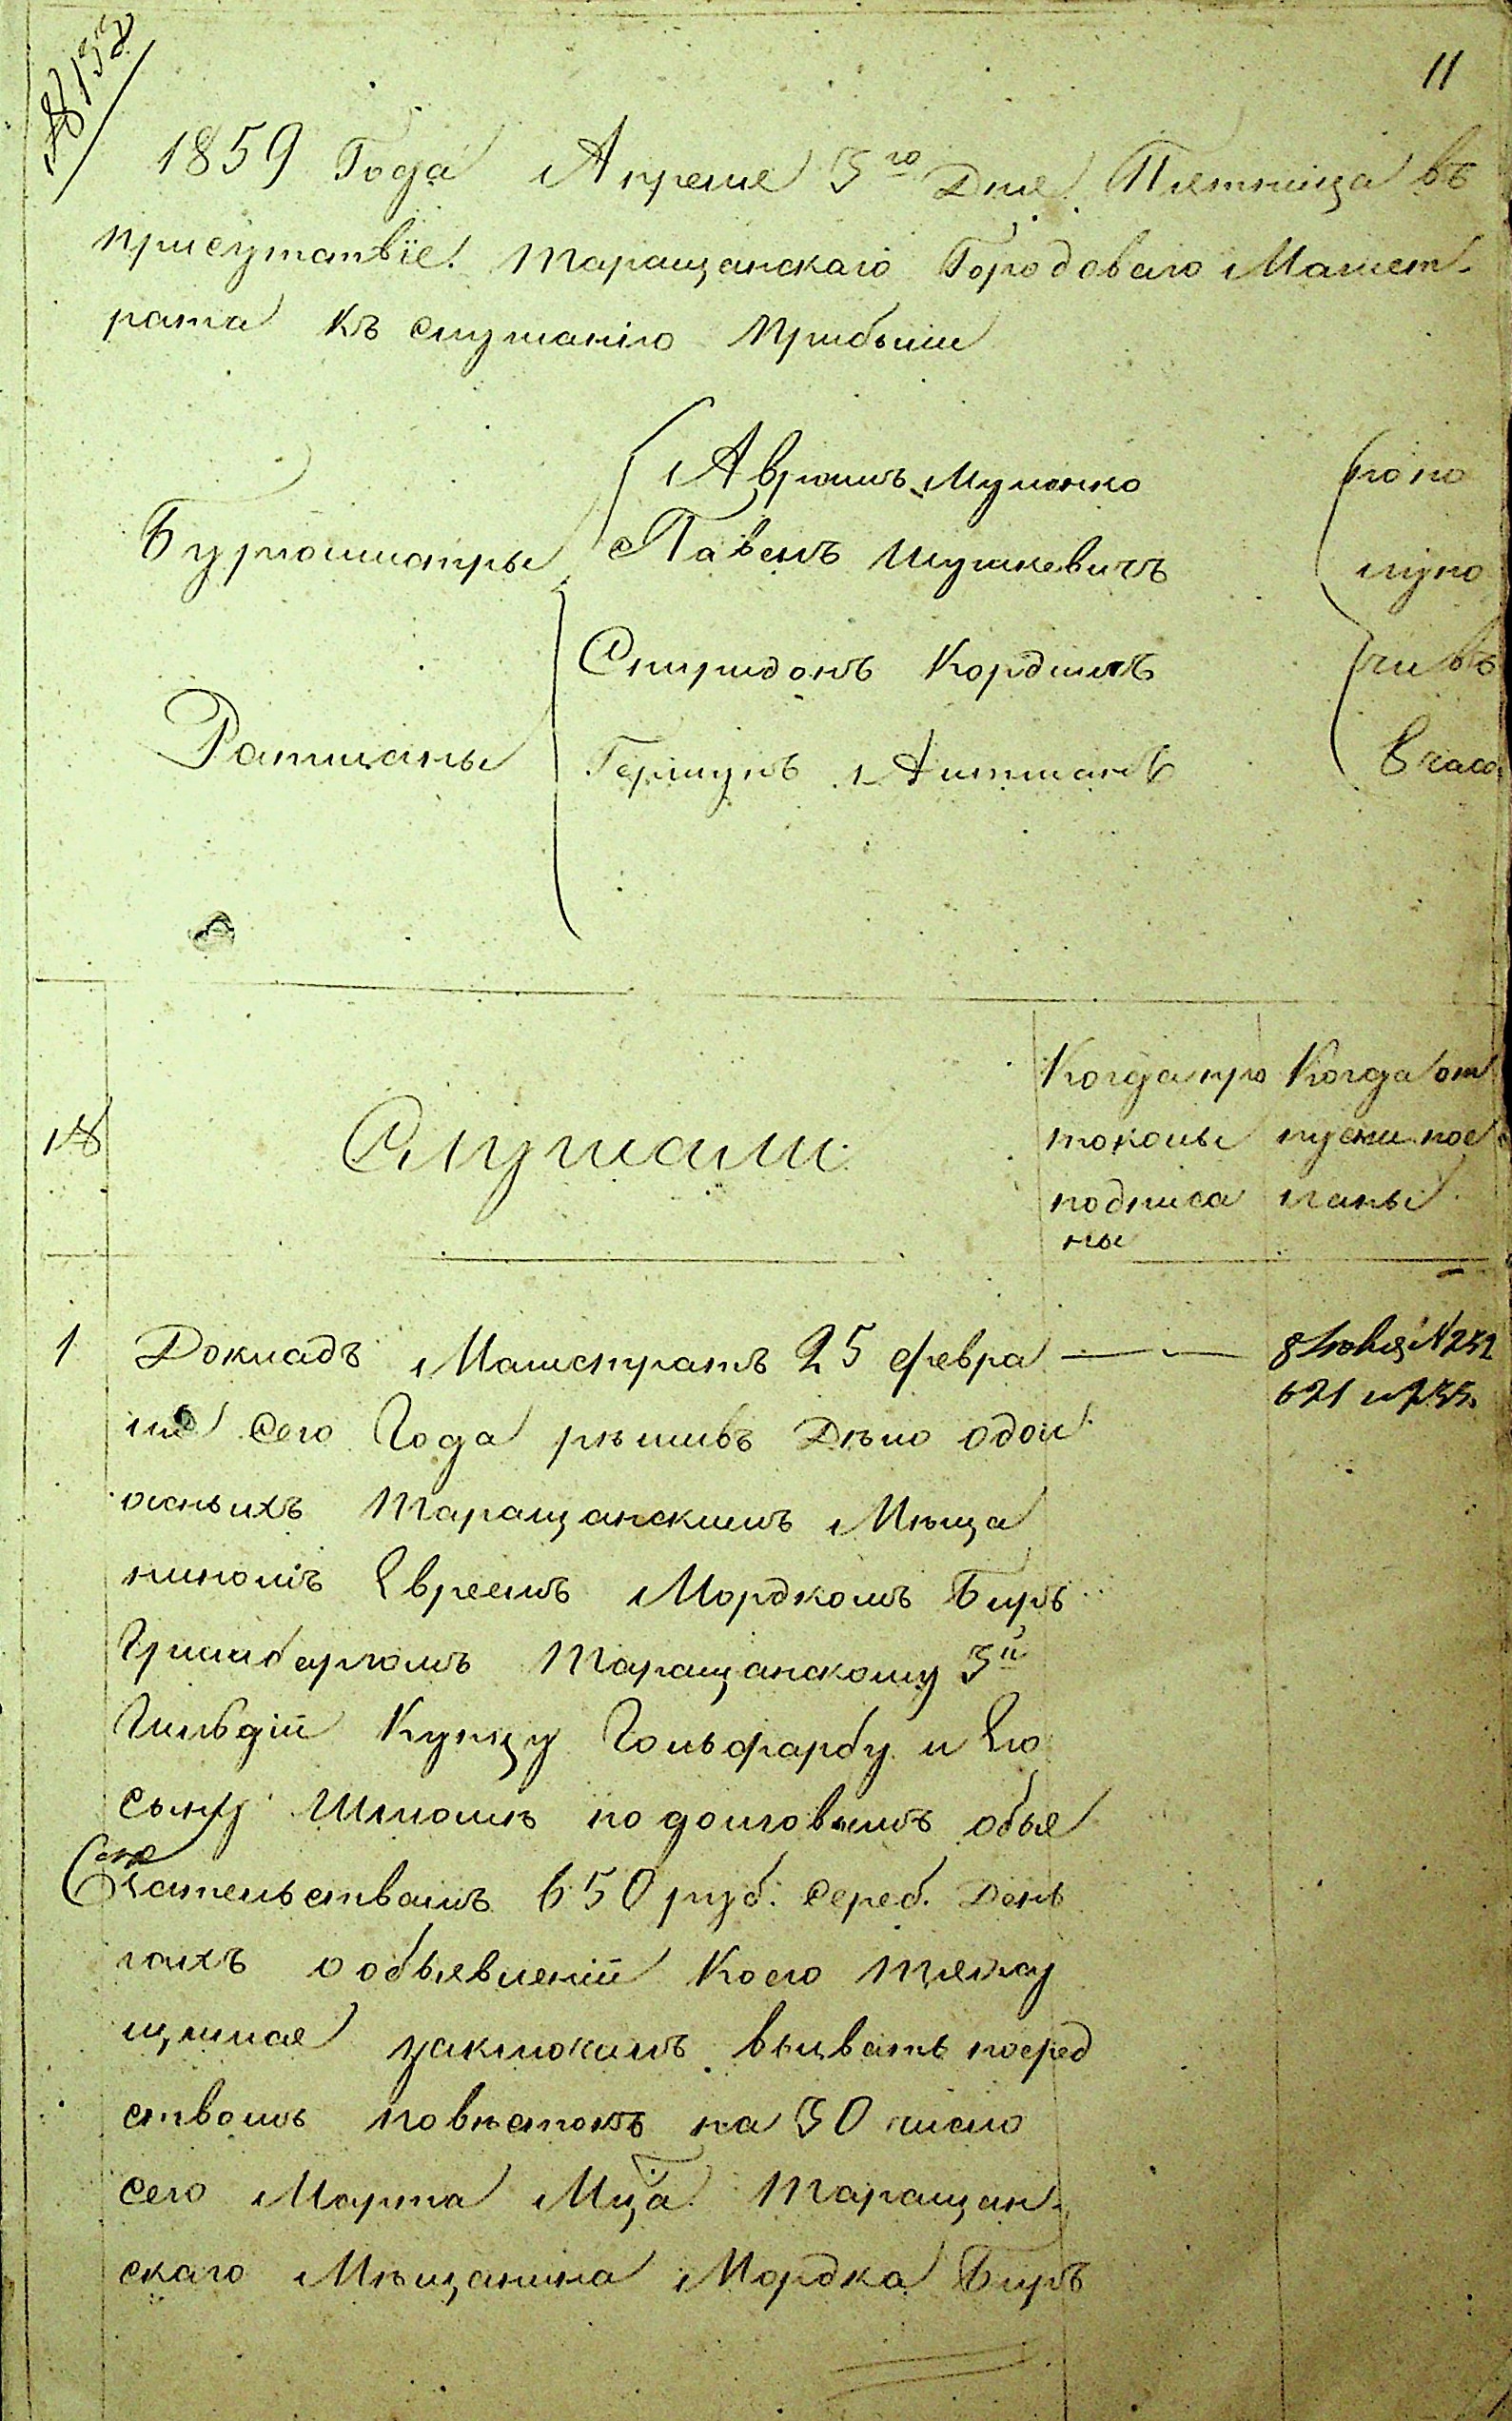 № 133
11
1859 Года Апреля 3го Дня Пятница въ
присутствіе Таращанскаго Городоваго Магист-
рата къ слушанію прибыли
Бургомистры
Павелъ Шушкевичъ
Ратманы
Спиридонъ
Гершунъ
по по
лудно
чи въ
8 часо
№
Слушали
Когда про
токолы
подписа
ны
Когда от
пуски пос
ланы
1 Докладъ Магистратъ 25 февра
ля сего Года рѣшивъ Дѣло о дол
жныхъ Таращанскимъ Мѣща
ниномъ Евреемъ Мордкомъ Беръ
Гринбергомъ Таращанскому 3й
Гильдіи Купцу Гольфарбу и Его
сыну Шлиомѣ по долговымъ обя
зательствамъ 650 руб. сереб. День
гахъ о объявленіи коего тяжу
щимся заключилъ вызвать посред
ствомъ повѣстокъ на 30 число
сего Марта Мца Таращан-
скаго Мѣщанина Мордка Беръ